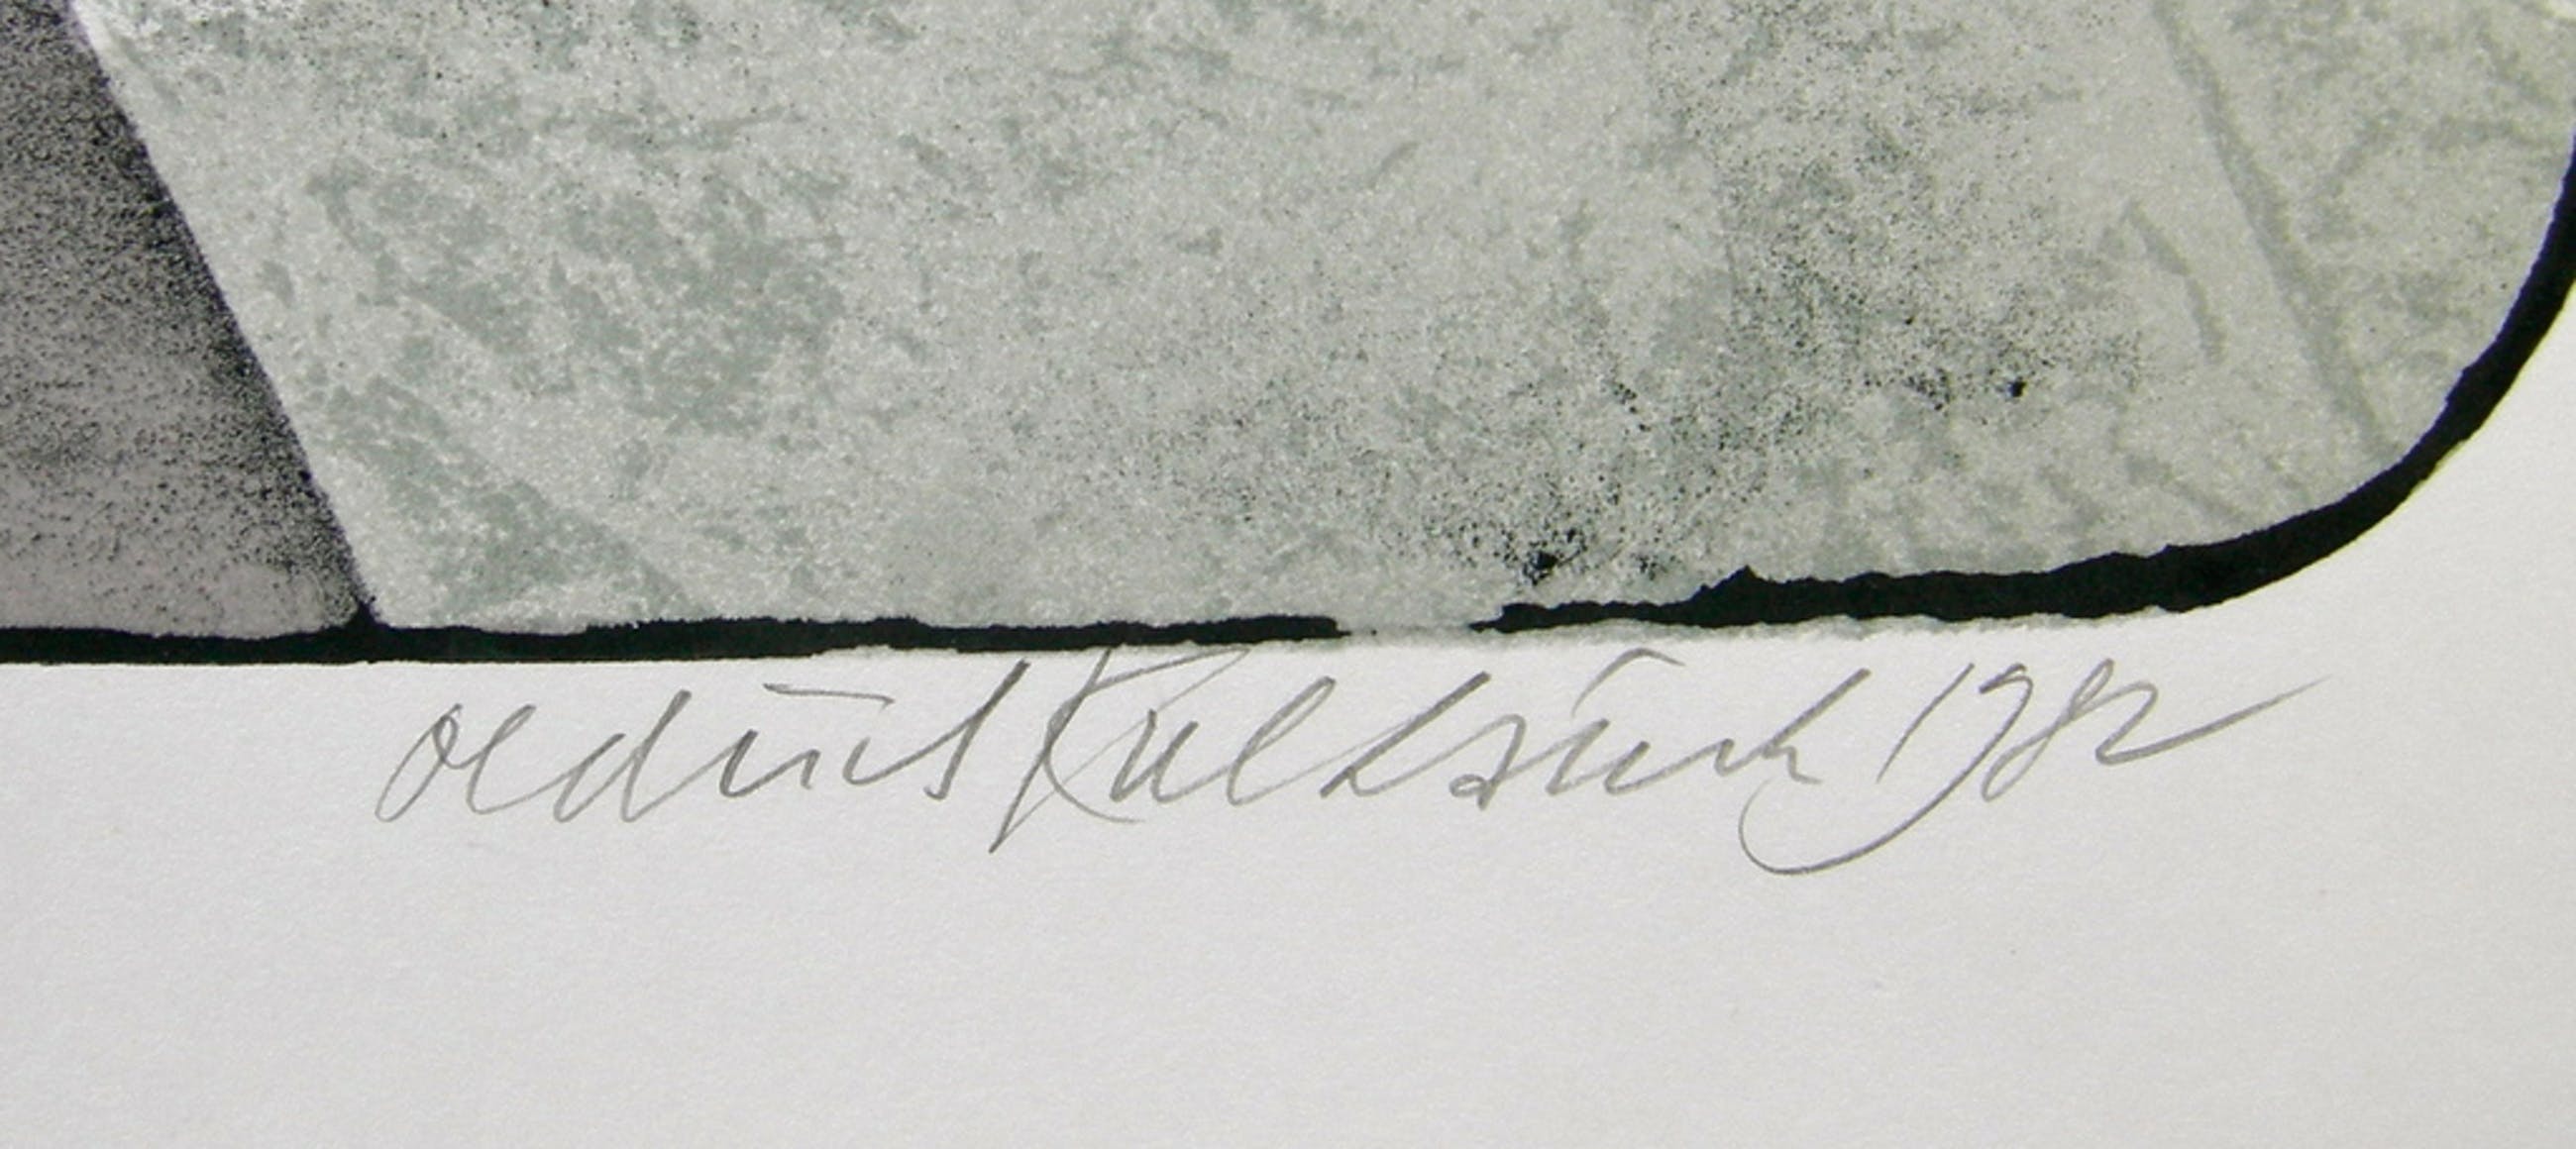 Oldřich Kulhánek 1982